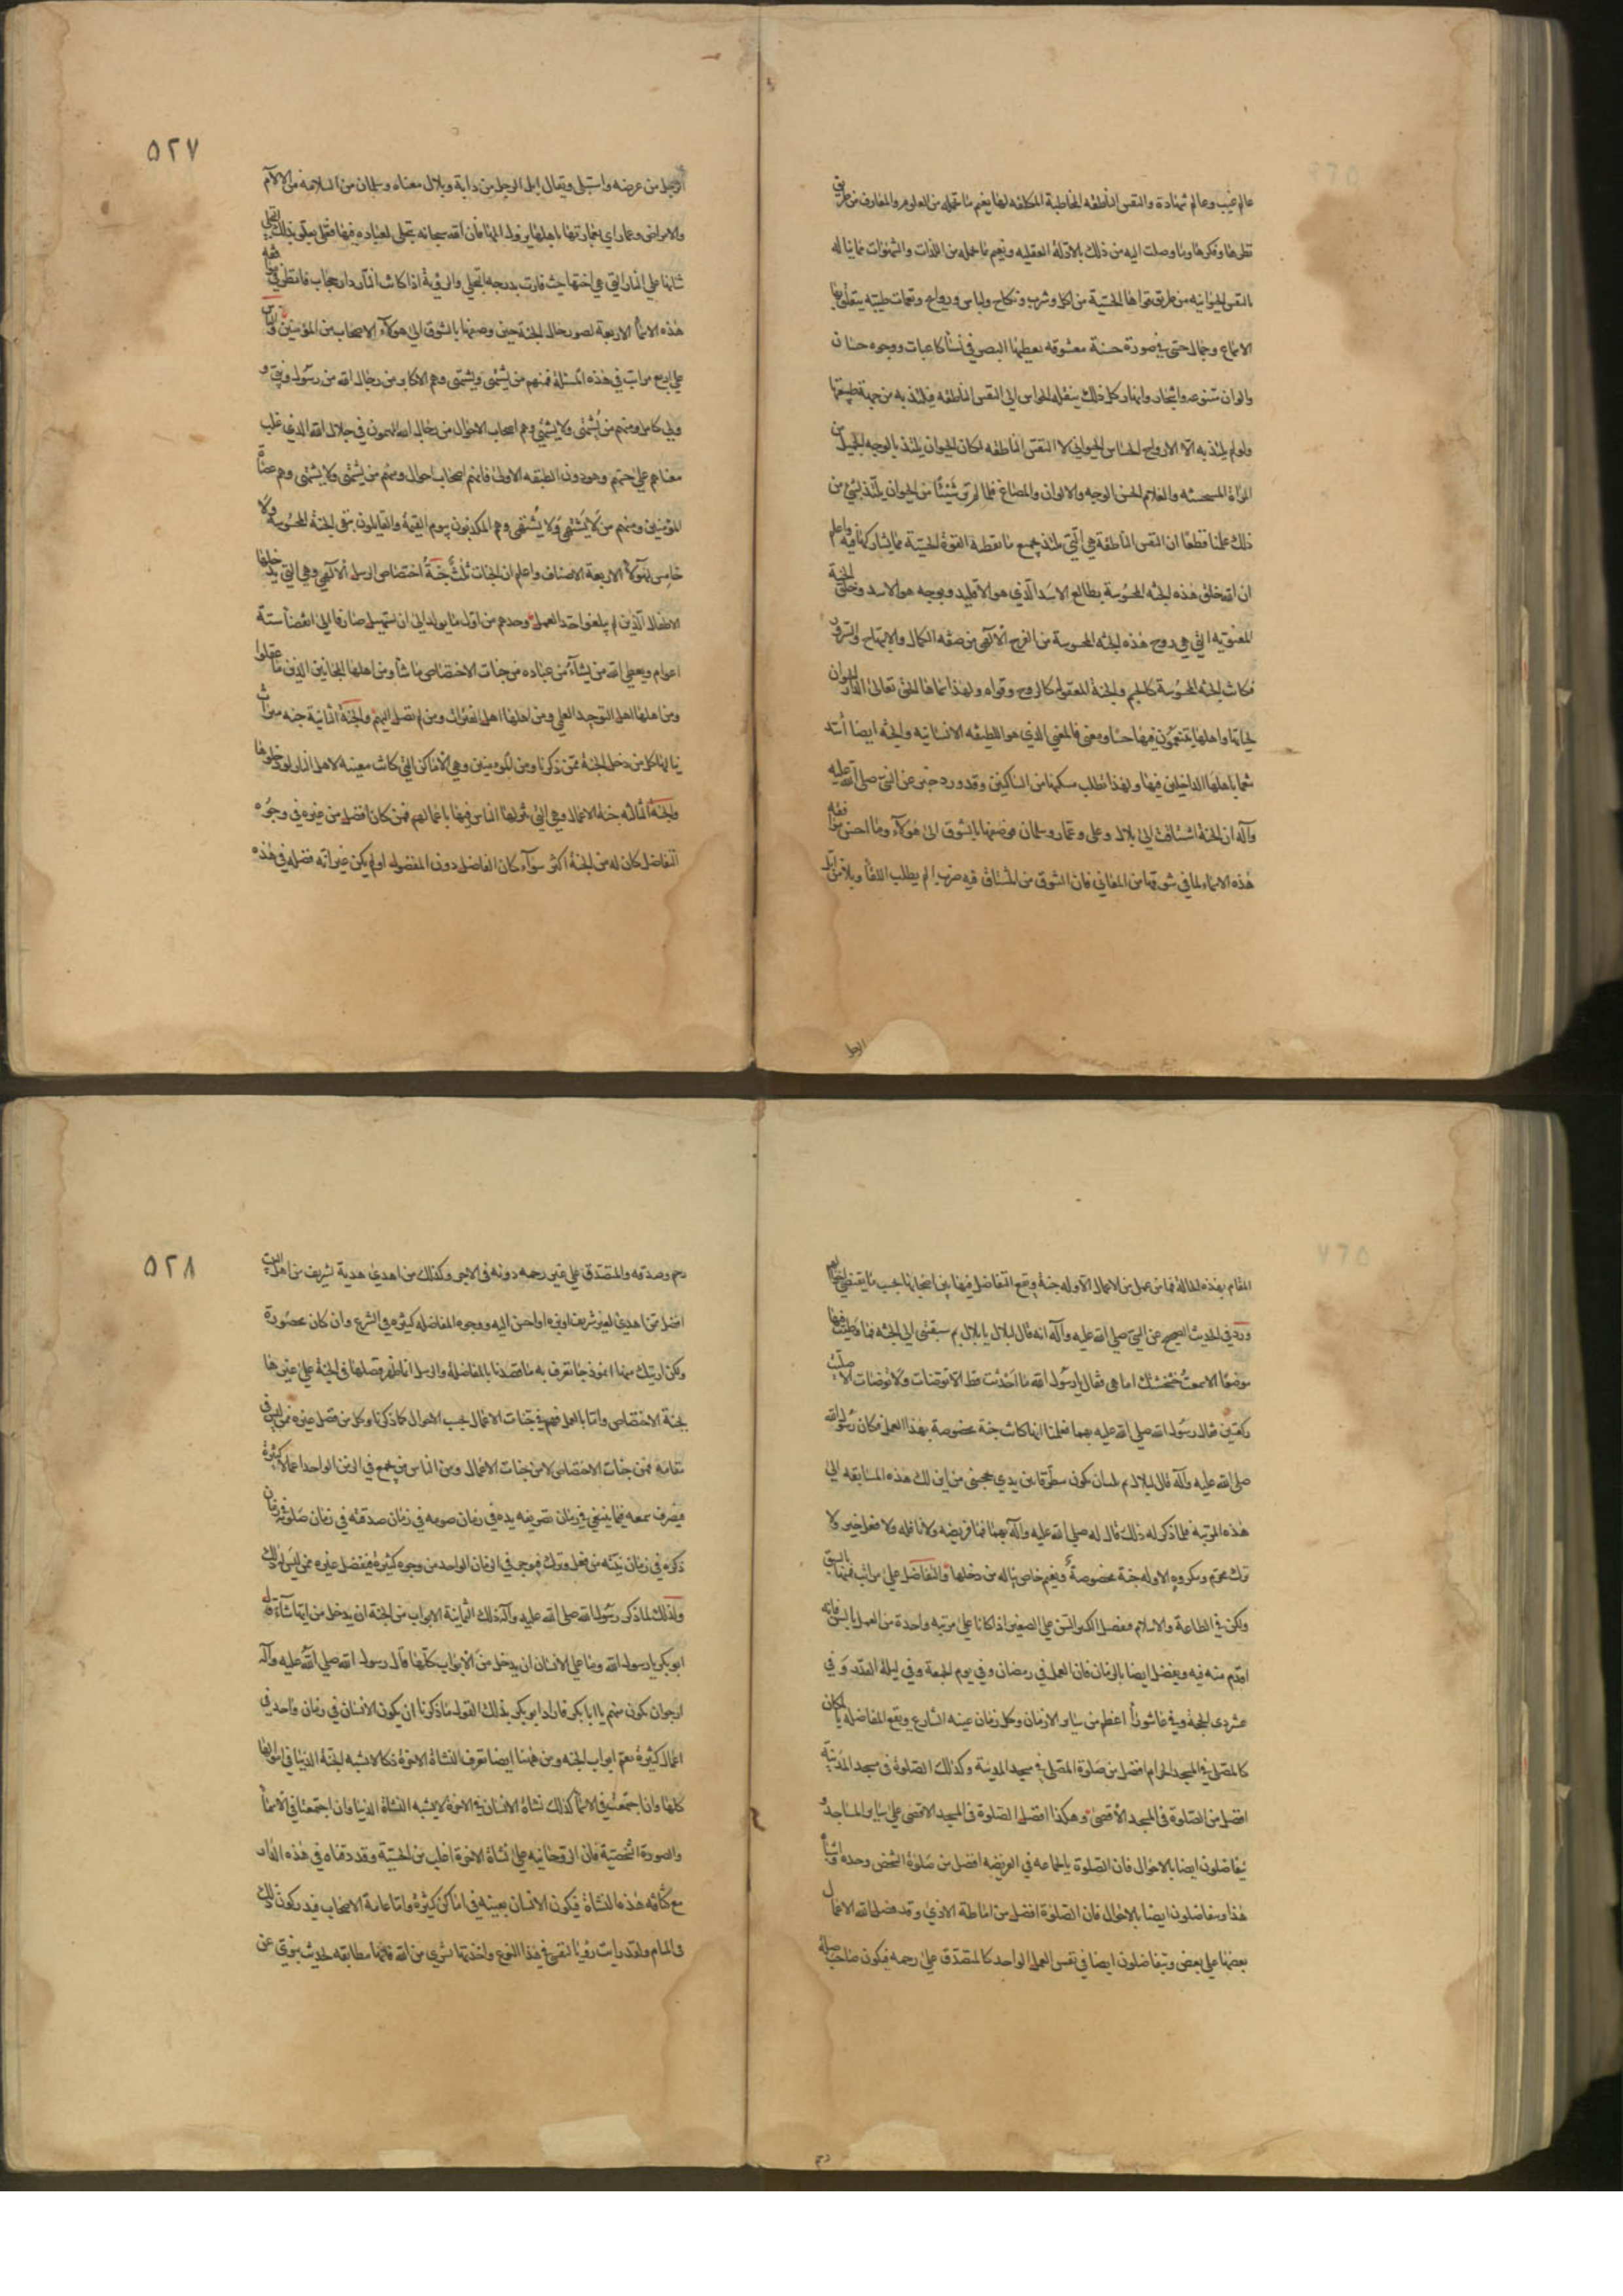 عالم غيب وعالم شهادة والنفس الناطقة المخاطبة المكلفة لها نعيم بما تحمله من العلوم والمعارف من طريق
نظرها وفكرها وما وصلت اليه من ذلك بالادلة العقليه ونعيم بما تحمله من اللذات والشهوات مما يناله
بالنفس الحيوانيه من طريق قواها الحسّيّة من اكل وشرب ونكاح ولباس وروايح ونغمات طيبة يتعلق بها
الاسماع وجمال حسّى فى صورة حسنة معشوقه يعطيها البصر فى نسآء كاعبات ووجوه حسان
والوان متنوعه واشجار وانهار كل ذلك ينقله الحواس الى النفس الناطقه فيلتذ به من جهة طبيعتها
ولو لم يلتذ به الّا الروح الحسّاس الحيوانى لا النفس الناطقه لكان الحيوان يلتذ بالوجه الجميل من
المرأة المستحسنه والغلام الحسن الوجه والالوان والمصاغ فلما لم نر شيئًا من الحيوان يلتذ بشئ من
ذلك علمنا قطعًا ان النفس الناطقة هى الّتى تلتذ بجميع ما تعطيه القوة الحسّيّة مما يشاركنا فيه واعلم
ان الله خلق هذه الجنّه المحسوسة بطالع الاسد الّذى هو الاقليد وبرجه هو الاسد وخلق الجنة
المعنوّيه التى هى روح هذه الجنّه المحسوسة من الفرح الالٓهى من صفة الكمال والابتهاج والسرور
فكانت الجنّه المحسوسة كالجسم والجنة المعقوله كالروح وقواه ولهذا سماها الحق تعالى الدار الحيوان
لحياتها واهلها يتنعّمون فيها حسّا ومعنى فالمعنى الذى هو اللطيفه الانسانيه والجنّه ايضا أشد
تنعما باهلها الداخلين فيها ولهذا تطلب ملأها من الساكنين وقد ورد خبر عن النبى صلى الله عليه
وآله ان الجنة اشتاقت الى بلال وعلى وعمار وسلمان فوصفها بالشوق الى هؤلآء وما احسن موافقة
هذه الاسماء لما فى شوقها من المعانى فان الشوق من المشتاق فيه ضرب الم يطلب اللقآ وبلال من ابلّ
الرجل
٥٢٧
الرجل من مرضه واستبل ويقال ابل الرجل من دآئه وبلال معناه وسلمان من السلامه من الالآم
والامراض وعمار اى بعمارتها باهلها يزول المها فان الله سبحانه يتجلى لعباده فيها فعلى يعلو بذلك التجلى
شانها على النار التى هى اختها حيث فازت بدرجة التجلى والرؤية اذا كانت النار دار حجاب فانظر فى موافقة
هذه الاسمآ الاربعة لصورة حال الجنة حين وصفها بالشوق الى هؤلآء الاصحاب من المؤمنين والناس
على اربع مراتب فى هذه المسئلة فمنهم من يَشتهى ويُشتهى وهم الاكابر من رجال الله من رسول ونبى و
ولى كامل ومنهم من يُشتهى ولا يشتهى وهم اصحاب الاحوال من رجال الله المهيمون فى جلال الله الذى غلب
معناهم على حسهم وهم دون الطبقه الاولى فانهم اصحاب احوال ومنهم من يَشتهى ولا يُشتهى وهم عصاة
المؤمنين ومنهم من لا يَشتهى ولا يُشتهى وهم المكذبون بيوم القيمة والقايلون بنفى الجنة المحسوسة ولا
خامس لهؤلآء الاربعة الاصناف واعلم ان الجنات ثلث جنة اختصاص الٓهى وهى التى يدخلها
الاطفال الّذين لم يبلغوا حد العمل وحدهم من اول ما يولد الى ان يستهل صارخا الى انقضآء ستة
اعوام ويعطى الله من يشآء من عباده من جنات الاختصاص ما شآء ومن اهلها المجانين الذين ما عقلوا
ومن اهلها اهل التوحيد العلمى ومن اهلها اهل الفترات ومن لم تصل اليهم والجنة الثانية جنه ميراث
ينالها كل من دخل الجنة ممن ذكرنا ومن المؤمنين وهى الاماكن التى كانت معينه لاهل النار لو دخلوها
والجنة الثالثه جنة الاعمال وهى التى ينزلها الناس فيها باعمالهم فمن كان افضل من غيره فى وجوه
التفاضل كان له من الجنة اكثر سوآء كان الفاضل دون المفضول او لم يكن غير انّه فضله فى هذه
المقام بهذه الحالة فما من عمل من الاعمال الا وله جنة ويقع التفاضل فيها بين اصحابها بحسب ما يقتضى احوالهم
ورد فى الحديث الصحيح عن النبى صلى الله عليه وآله انه قال لبلال يا بلال بم سبقتنى الى الجنّه فما وطئت فيها
موضعًا الا سمعتُ خشخشتك امامى فقال يا رسول الله ما احدثت قط الا توضات ولا توضات الا صليت
ركعتين فقال رسول الله صلى الله عليه بهما فعلمنا انها كانت جنة مخصوصة بهذا العمل فكان رسول الله
صلى الله عليه وآله قال لبلال بم نلت ان تكون مطرّقا بين يدى تحجبنى من اين لك هذه المسابقه الى
هذه المرتبه فلما ذكر له ذلك قال له صلى الله عليه وآله بهما فما فريضه ولا نافله ولا فعل خير ولا
ترك محرّم ومكروه الا وله جنة مخصوصة ونعيم خاص يناله من دخلها والتفاضل على مراتب فمنها بالسن
ولكن فى الطاعة والاسلام فيفضل الكبير السّن على الصغير اذا كانا على مرتبه واحدة من العمل بالسن فانه
اقدم منه فيه ويفضل ايضا بالزمان فان العمل فى رمضان وفى يوم الجمعة وفى ليلة القدر وَ فى
عشر ذى الحجة وفى عاشورآء اعظم من ساير الازمان وكل زمان عينه الشارع ويقع المفاضله بالمكان
كالمصلى فى المسجد الحرام افضل من صلوة المصلى فى مسجد المدينة وكذلك الصلوة فى مسجد المدينة
افضل من الصلوة فى المسجد الاقصى وهكذا افضل الصلوة فى المسجد الاقصى على ساير المساجد و
يتفاضلون ايضا بالاحوال فان الصلوة بالجماعه فى الفريضه افضل من صلوة الشخص وحده واشباه
هذا ويتفاضلون ايضا بالاعمال فان الصلوة افضل من اماطة الاذى وقد فضل الله الاعمال
بعضها على بعض ويتفاضلون ايضا فى نفس العمل الواحد كالمتصدّق على رحمه فيكون صاحب صلة
رحم
٥٢٨
رحم وصدقه والمتصدّق على غير رحمه دونه فى الاجر وكذلك من اهدى هدية لشريف من اهل البيت
افضل ممن اهدى لغير شريف او بره او احسن اليه ووجوه المفاضله كثيرة فى الشرع وان كان محصورة
ولكن اريتك منها انموذجا تعرف به ما قصدنا بالمفاضلة والرسل انما ظهر فضلها فى الجنة على غيرها
بجنة الاختصاص واما بالعمل فهم فى جنات الاعمال بحسب الاحوال كما ذكرنا وكل من فضل غيره ممن ليس فى
مقامه فمن جنات الاختصاص لا من جنات الاعمال ومن الناس من يجمع فى الزمن الواحد اعمالا كثيرة
فيصرف سمعه فيما ينبغى فى زمان تصريفه يده فى زمان صومه فى زمان صدقته فى زمان صلوته فى زمان
ذكره فى زمان نيّته من فعل وترك فيوجر فى الزمان الواحد من وجوه كثيرة فيفضل غيره ممن ليس له ذلك
ولذلك لما ذكر رسول الله صلى الله عليه وآله ذلك الثمانية الابواب من الجنة ان يدخل من ايها شآء قال
ابو بكر يا رسول الله وما على الانسان ان يدخل من الابواب كلّها قال رسول الله صلى الله عليه وآله
ارجو ان تكون منهم يا ابا بكر فاراد ابو بكر بذلك القول ما ذكرنا ان يكون الانسان فى زمان واحد فى
اعمال كثيرة تعمّ ابواب الجنه ومن ههنا ايضا تعرف النشاة الاخرة فكما لا تشبه الجنة الدنيا فى احوالها
كلها وان اجتمعت فى الاسمآ كذلك نشاة الانسان فى الاخرة لا يشبه النشاة الدنيا وان اجتمعتا فى الاسمآ
والصورة الشخصية فان الروحانيه على نشاة الاخرة اغلب من الحسّيّة وقد ذقناه فى هذه الدار
مع كثافه هذه النشاة فيكون الانسان بعينه فى اماكن كثيرة واما عامة الاصحاب فيدركون ذلك
فى المنام ولقد رايت رؤيا لنفسى فى هذا النوع واخذتها بشرى من الله فانها مطابقه لحديث نبوىّ عن